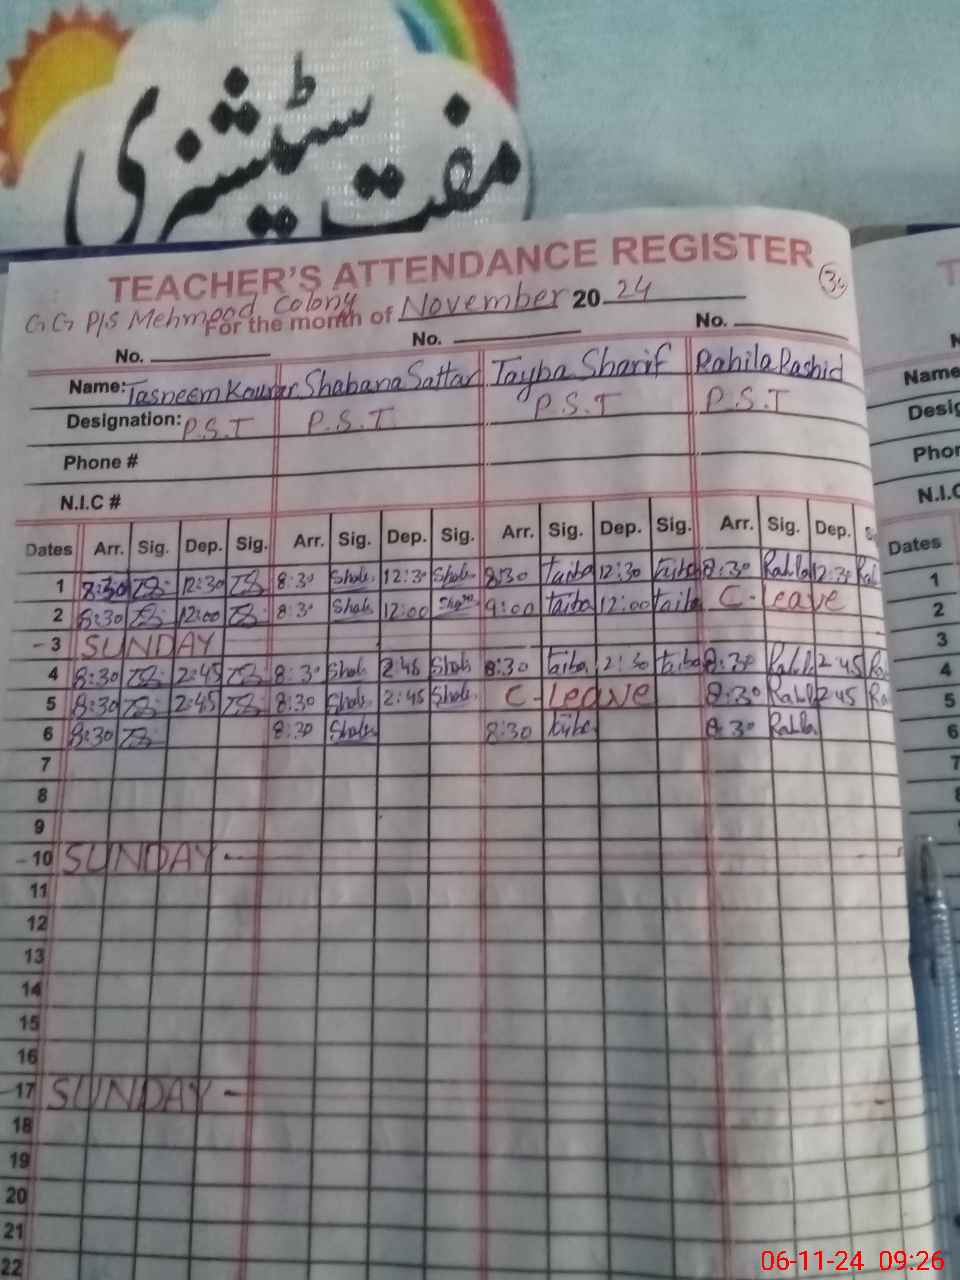 مفت سٹیشنری
TEACHER'S ATTENDANCE REGISTER
GG P/S Mehmood Colony
For the month of November 2024
No. No. No.
Name: Tasneem Kousar Shabana Sattar Tayba Sharif Rahila Rashid
Designation: P.S.T P.S.T P.S.T P.S.T
Phone #
N.I.C #
Dates Arr. Sig. Dep. Sig. Arr. Sig. Dep. Sig. Arr. Sig. Dep. Sig. Arr. Sig. Dep.
1 8:30 12:30 8:30 Shab. 12:30 Shab. 8:30 taiba 12:30 taiba 8:30 Rahla 12:30
2 8:30 12:00 8:30 Shab. 12:00 9:00 taiba 12:00 taiba C-Leave
3 SUNDAY
4 8:30 2:45 8:30 Shab. 2:45 Shab. 8:30 taiba taiba 8:30 2:45
5 8:30 2:45 8:30 Shab. 2:45 Shab. C-Leave 8:30 2:45
6 8:30 8:30 Shab. 8:30 8:30 Rahla
7
8
9
10 SUNDAY
11
12
13
14
15
16
17 SUNDAY
18
19
20
21
22
Name
Desig
Phor
N.I.C
Dates
1
2
3
4
5
6
7
06-11-24 09:26